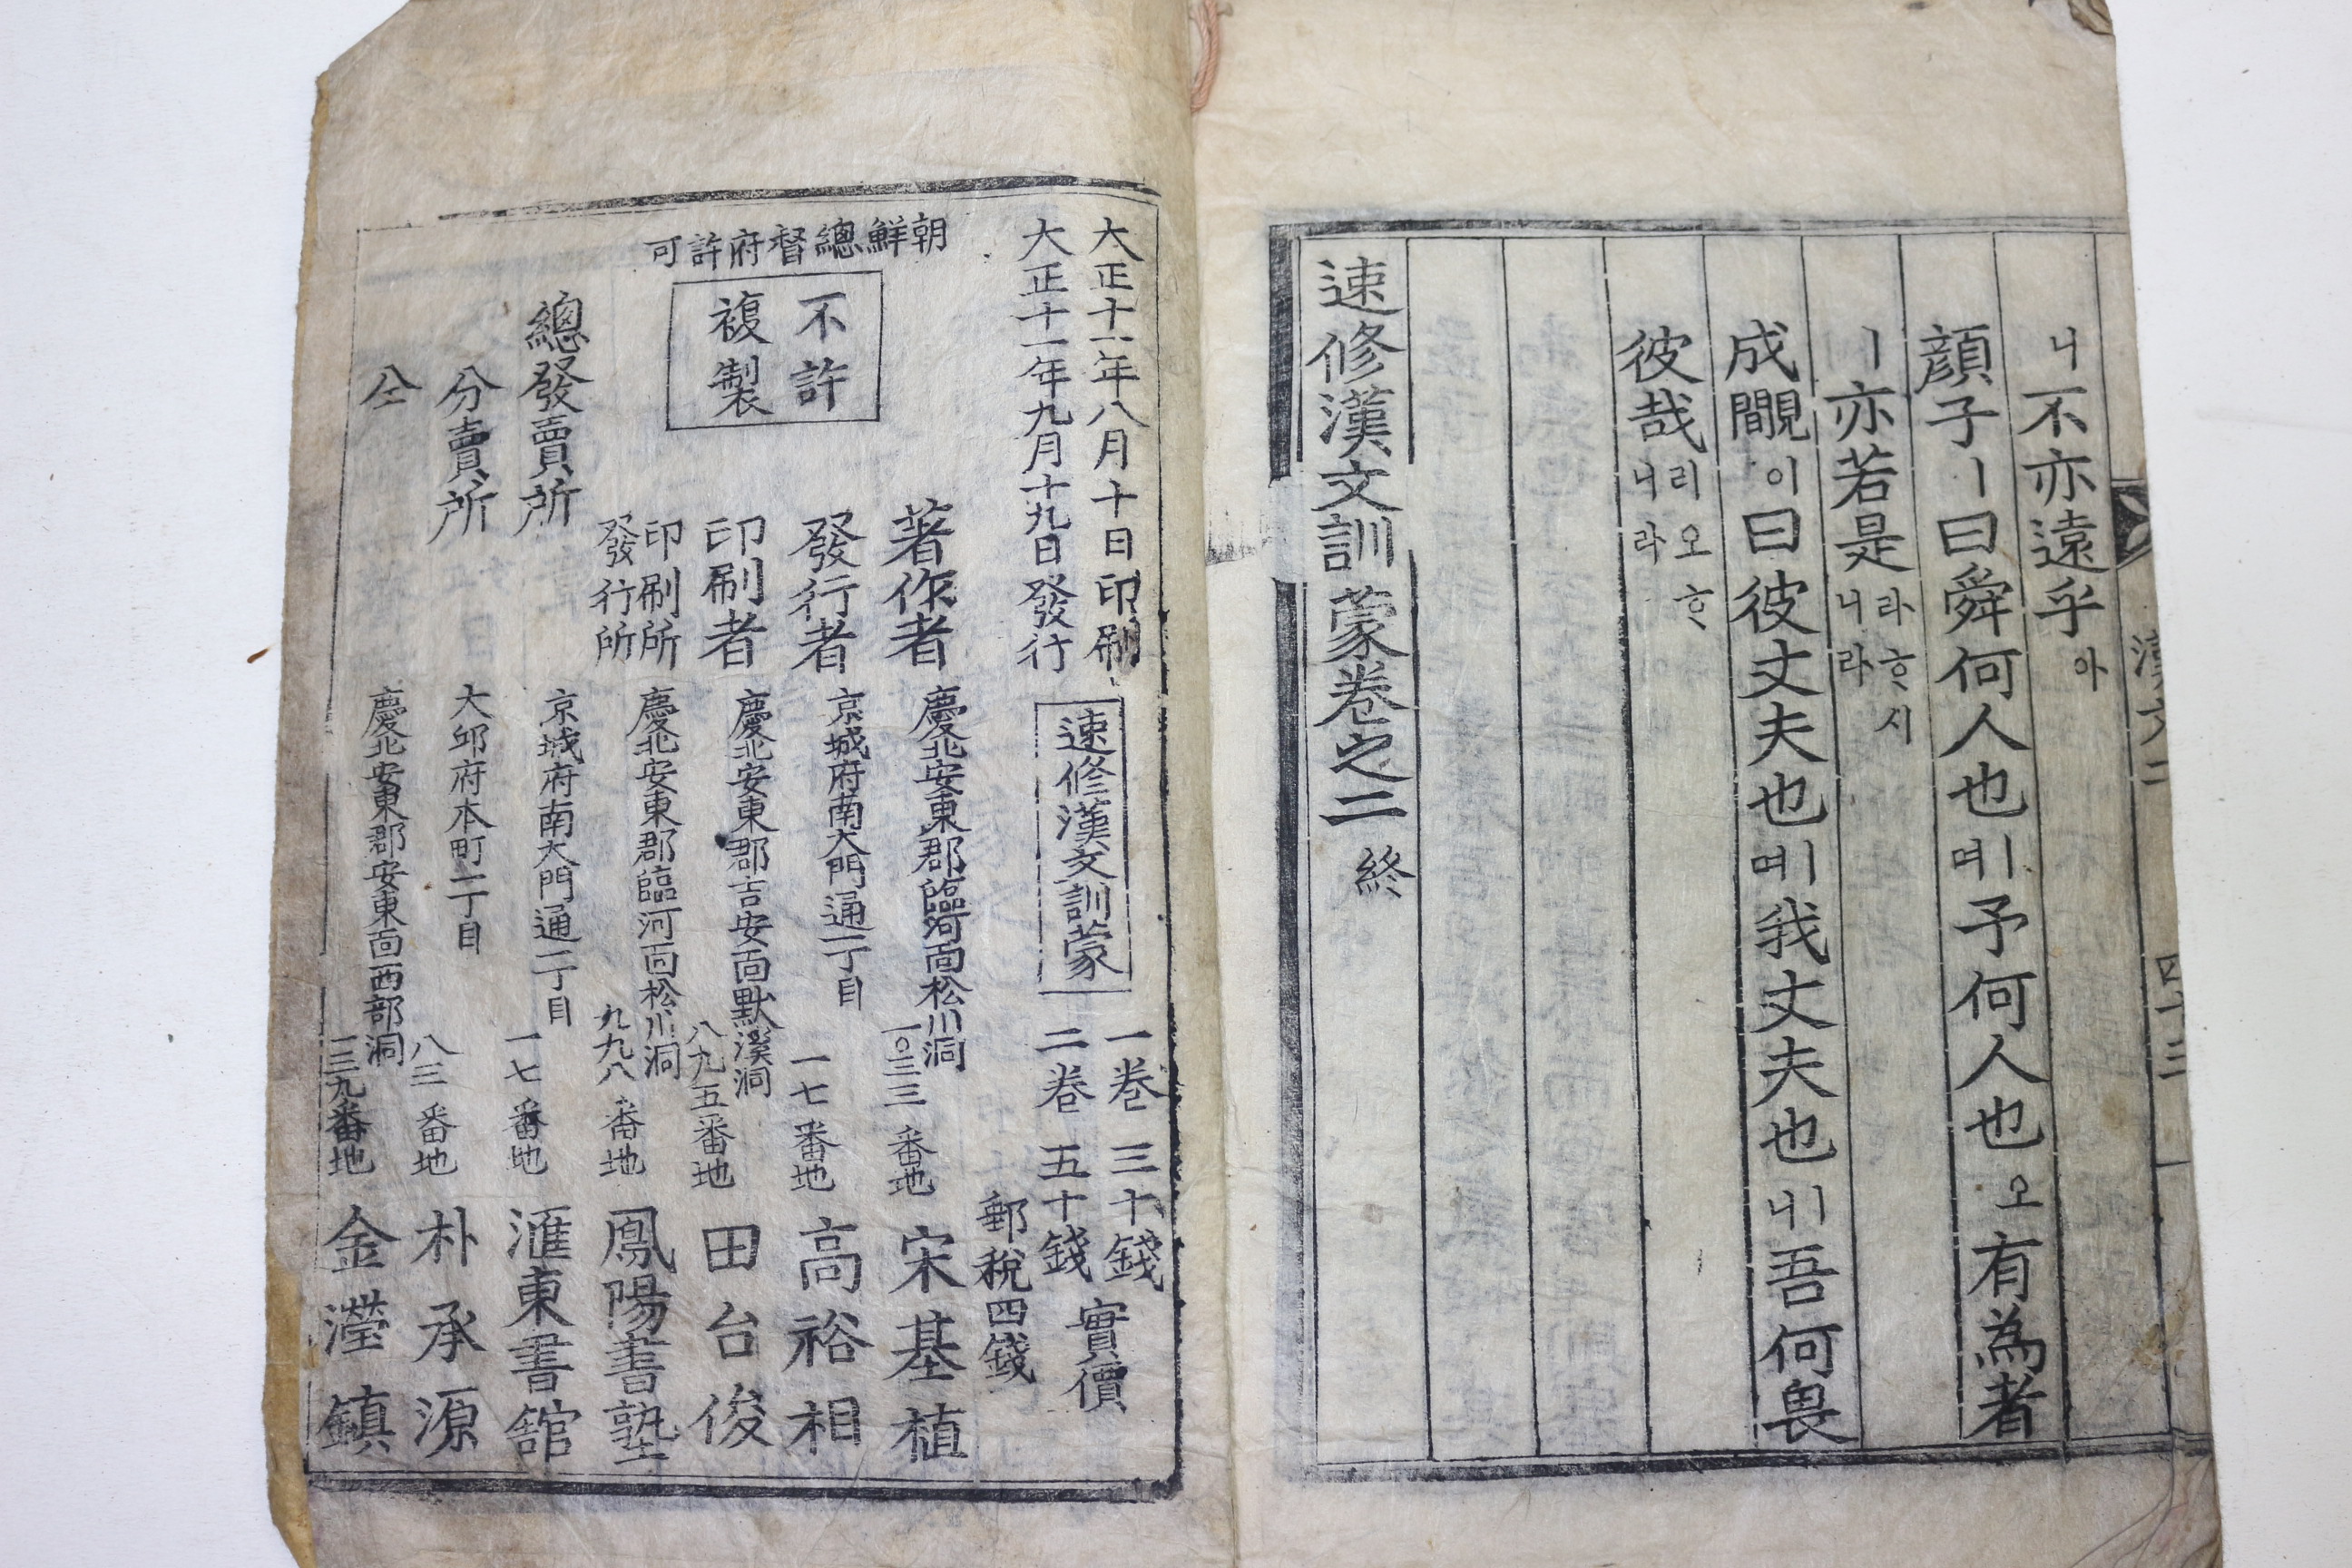 ㅣ니不亦遠乎아
顔子ㅣ曰舜何人也며予何人也오有爲者
ㅣ亦若是라ᄒᆞ시니라
成覵이曰彼丈夫也며我丈夫也니吾何畏
彼哉리오ᄒᆞ니라
速修漢文訓蒙卷之二 終
四十三
大正十一年八月十日印刷
大正十一年九月十九日發行
速修漢文訓蒙
一卷 三十錢
二卷 五十錢
實價
郵稅四錢
朝鮮總督府許可
不許
複製
著作者 慶北安東郡臨河面松川洞 一〇三三番地 宋基植
發行者 京城府南大門通一丁目 一七番地 高裕相
印刷者 慶北安東郡吉安面默溪洞 八九五番地 田台俊
印刷所
發行所 慶北安東郡臨河面松川洞 九九八番地 鳳陽書塾
總發賣所 京城府南大門通一丁目 一七番地 滙東書舘
分賣所 大邱府本町一丁目 八三番地 朴承源
仝 慶北安東郡安東面西部洞 一三九番地 金瀅鎭